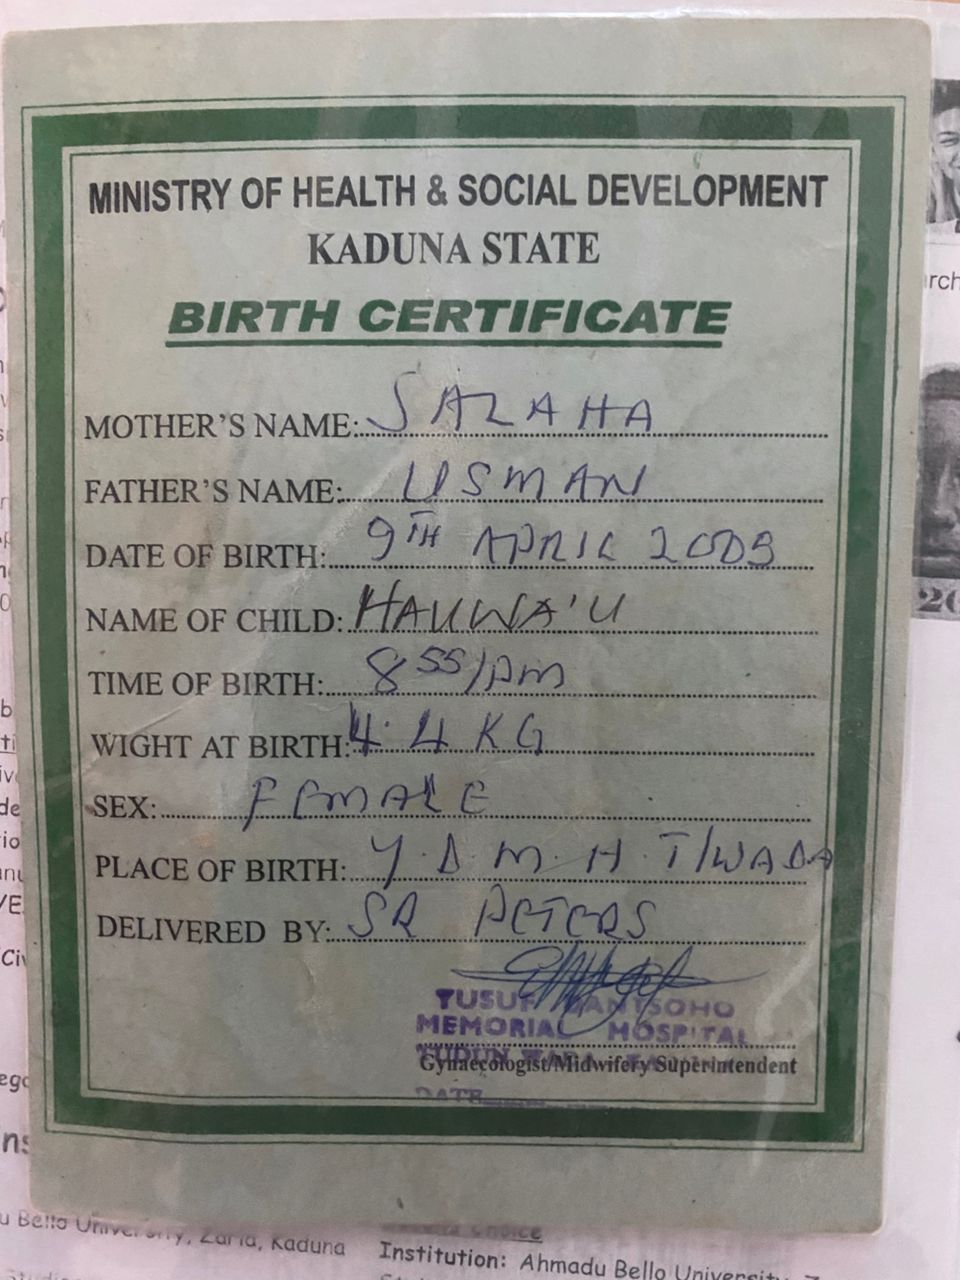 MINISTRY OF HEALTH & SOCIAL DEVELOPMENT
KADUNA STATE
BIRTH CERTIFICATE
MOTHER'S NAME: SALAHA
FATHER'S NAME: USMAN
DATE OF BIRTH: 9TH APRIL
NAME OF CHILD: HAUWA'U
TIME OF BIRTH: 8 55/PM
WIGHT AT BIRTH: 4.4 KG
SEX: FEMALE
PLACE OF BIRTH: Y.D.M.H T/WADA
DELIVERED BY: SR PETERS
YUSUF DANTSOHO
MEMORIAL HOSPITAL
TUDUN WADA
Gynaecologist/Midwifery Superintendent
DATE
Bello University, Zaria, Kaduna
Institution: Ahmadu Bello University